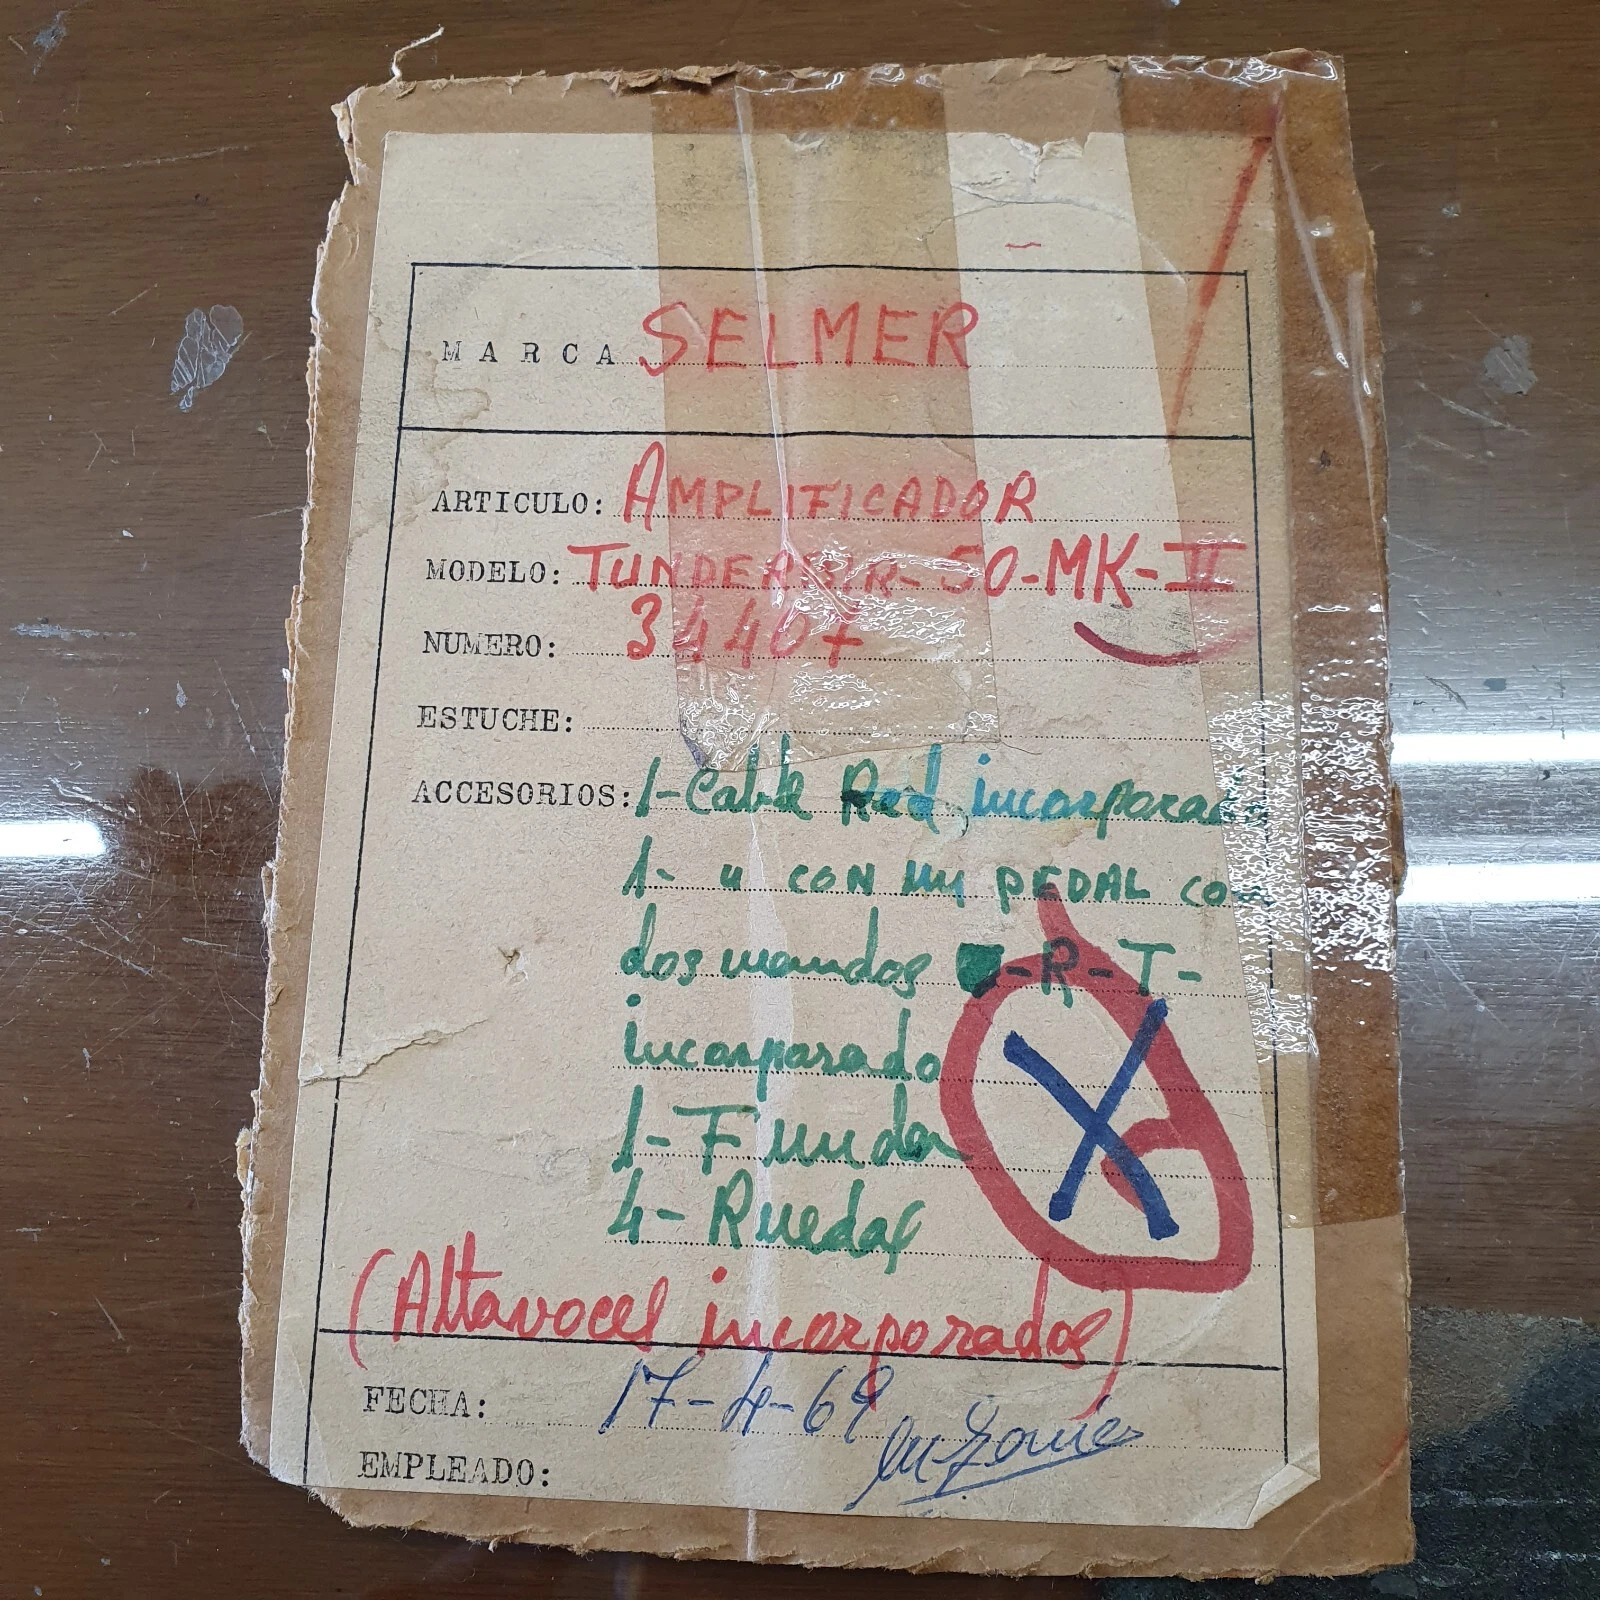 MARCA SELMER
ARTICULO: AMPLIFICADOR
MODELO: TUNDERBIR-50-MK-II
NUMERO: 34407
ESTUCHE:
ACCESORIOS: 1-Cable Red incorporado
1- " CON un PEDAL CON
dos mandos -R-T-
incorporado
1-Funda
4-Ruedas
(Altavoces incorporados)
FECHA: 17-4-69
EMPLEADO: